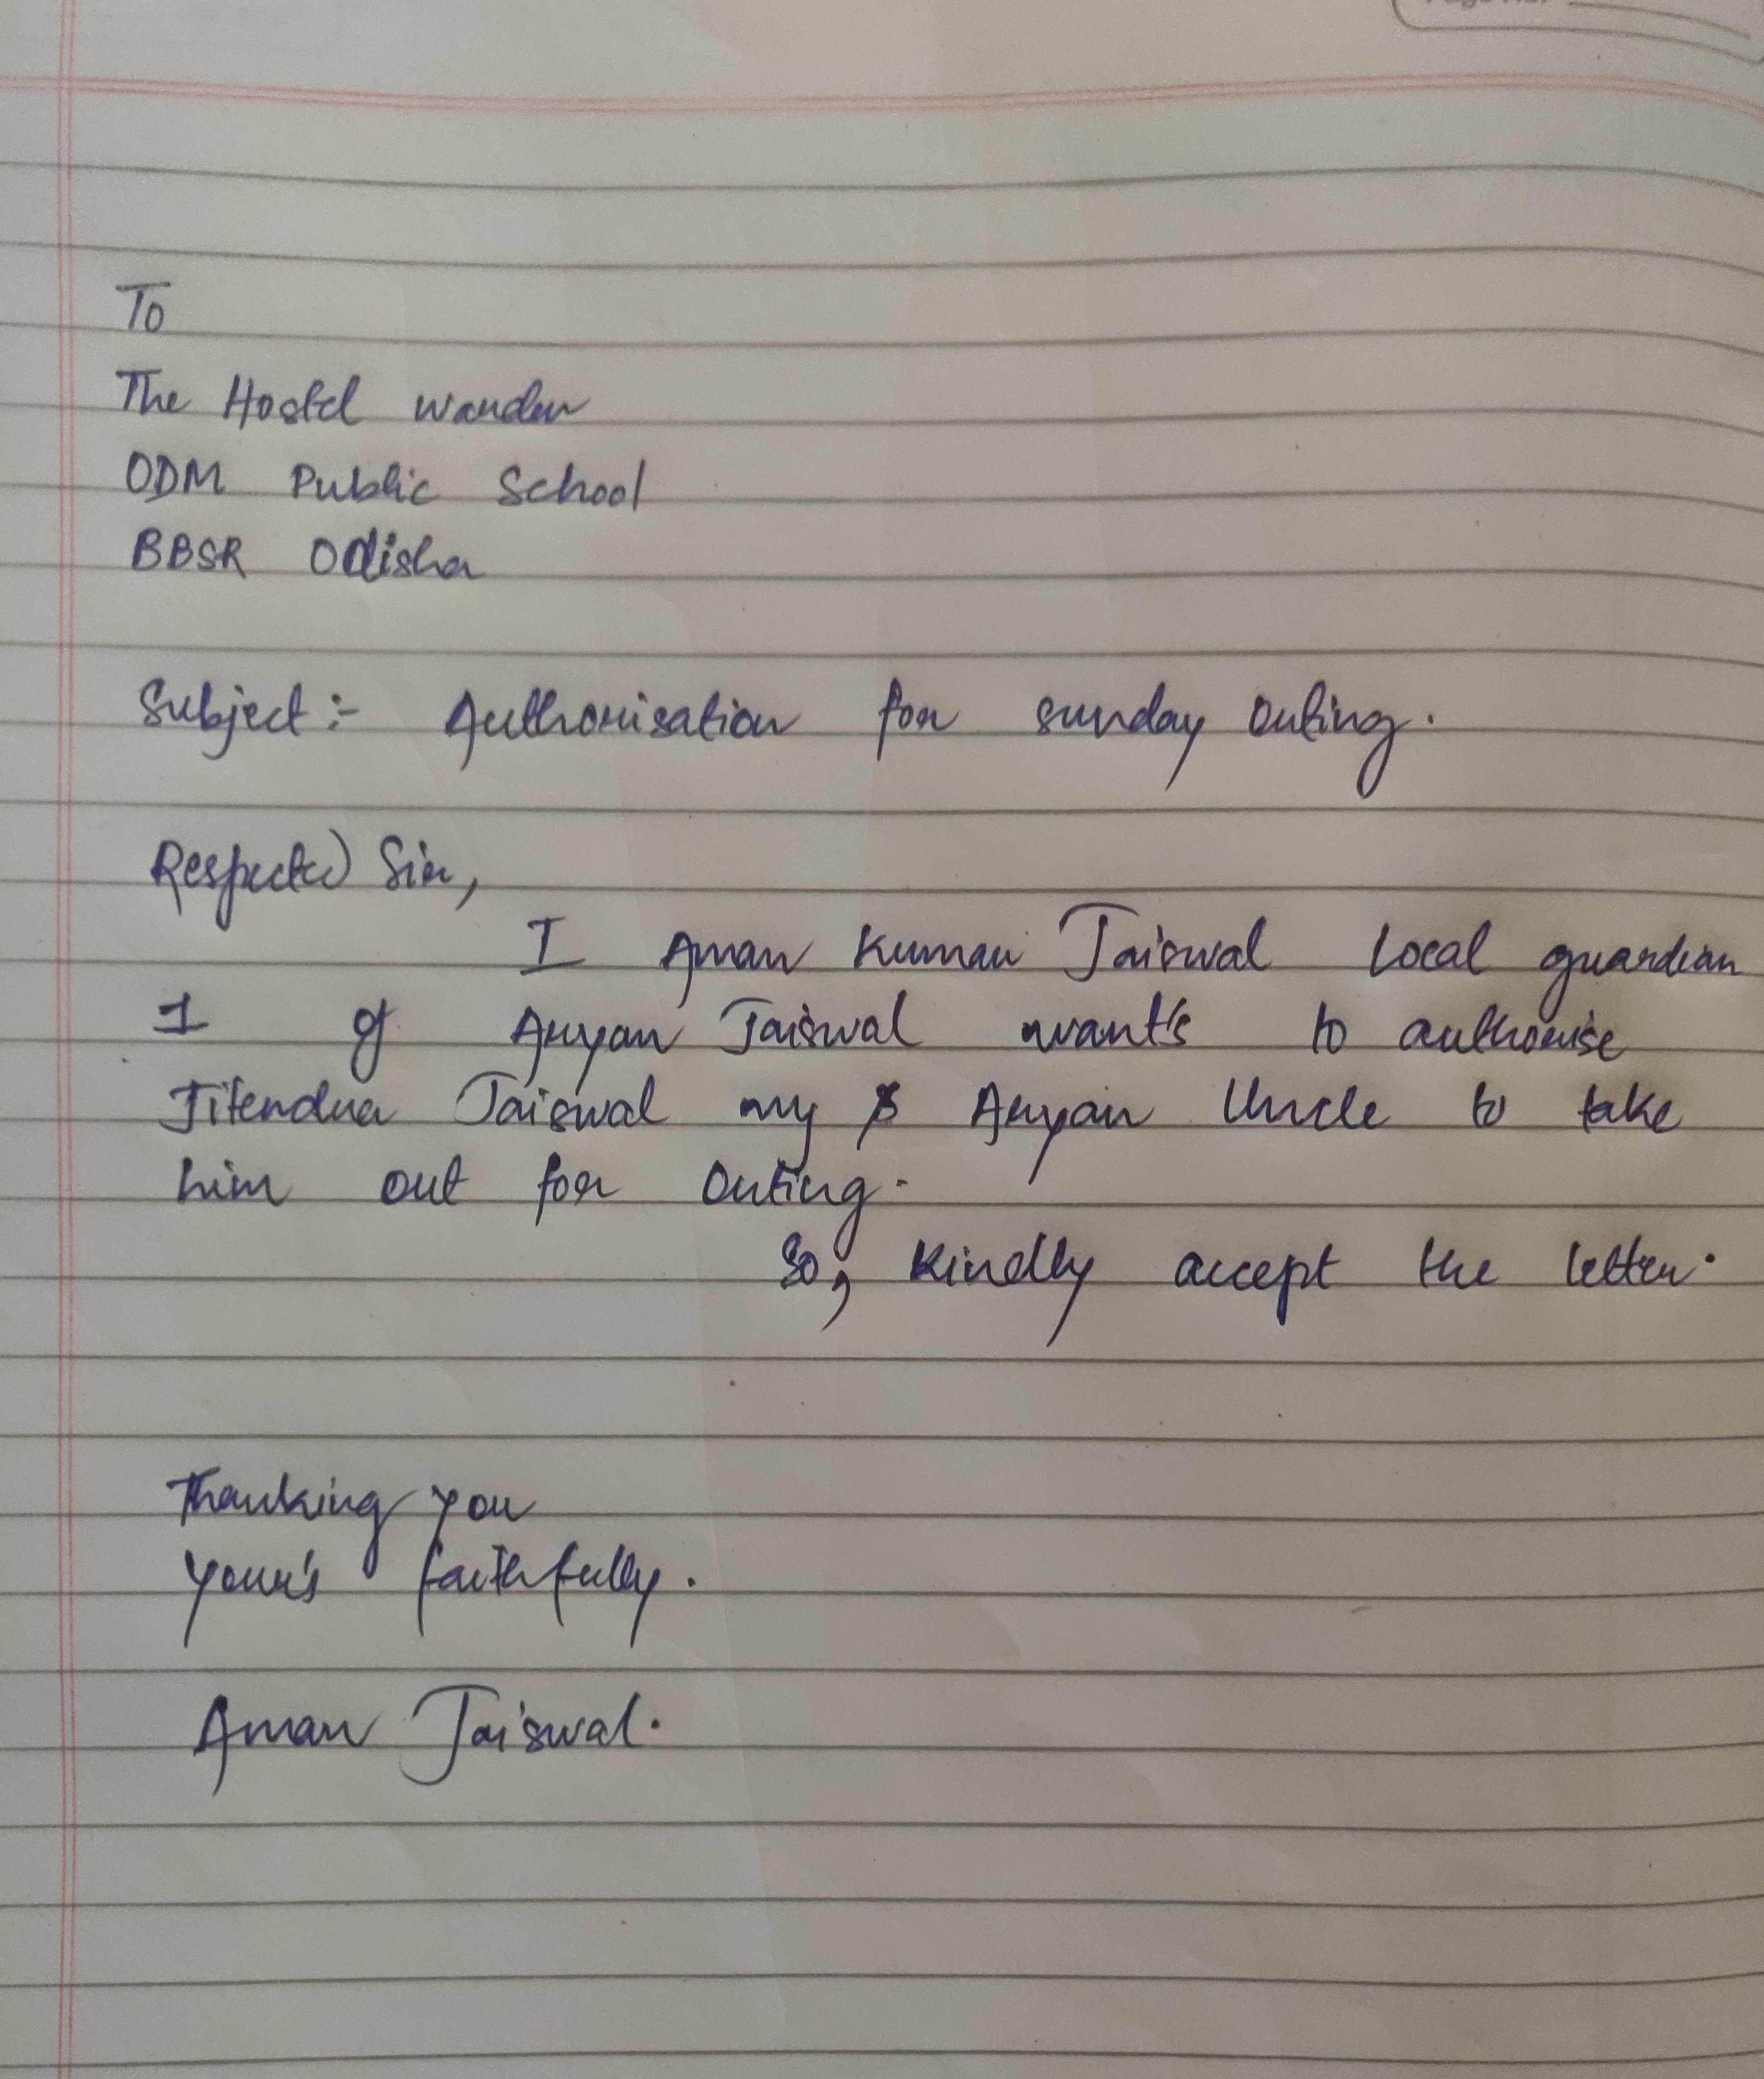 To
The Hostel warden
ODM Public School
BBSR Odisha
Subject :- Authorisation for sunday outing.
Respected Sir,
I Aman Kumar Jaiswal Local guardian
I of Aryan Jaiswal want's to authorise
Jitendra Jaiswal my Aryan Uncle to take
him out for outing.
So, Kindly accept the letter.
Thanking you
Your's faithfully.
Aman Jaiswal.